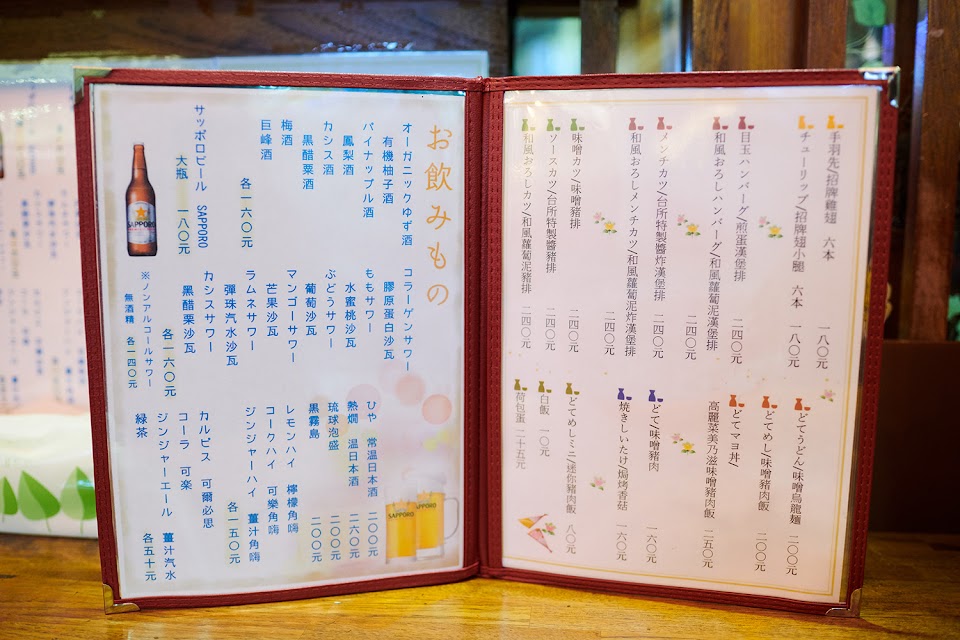 お飲みもの
オーガニックゆず酒
有機柚子酒
パイナップル酒
鳳梨酒
カシス酒
黒醋栗酒
梅酒
巨峰酒
各一六〇元
サッポロビール SAPPORO
大瓶 一八〇元
SAPPORO
コラーゲンサワー
膠原蛋白沙瓦
ももサワー
水蜜桃沙瓦
ぶどうサワー
葡萄沙瓦
マンゴーサワー
芒果沙瓦
ラムネサワー
彈珠汽水沙瓦
カシスサワー
黑醋栗沙瓦
各一六〇元
※ノンアルコールサワー
無酒精 各一四〇元
ひや 常温日本酒 二〇〇元
熱燗 温日本酒 二六〇元
琉球泡盛 二〇〇元
黒霧島 二〇〇元
レモンハイ 檸檬角嗨
コークハイ 可樂角嗨
ジンジャーハイ 薑汁角嗨
各一五〇元
カルピス 可爾必思
コーラ 可楽
ジンジャーエール 薑汁汽水
緑茶
各五十元
SAPPORO
SAPPORO
手羽先/招牌雞翅 六本 一八〇元
チューリップ/招牌翅小腿 六本 一八〇元
目玉ハンバーグ/煎蛋漢堡排 二四〇元
和風おろしハンバーグ/和風蘿蔔泥漢堡排 二四〇元
メンチカツ/台所特製醬炸漢堡排 二四〇元
和風おろしメンチカツ/和風蘿蔔泥炸漢堡排 二四〇元
味噌カツ/味噌豬排 二四〇元
ソースカツ/台所特製醬豬排 二四〇元
和風おろしカツ/和風蘿蔔泥豬排 二四〇元
どてうどん/味噌烏龍麵 二〇〇元
どてめし/味噌豬肉飯 二〇〇元
どてマヨ丼/
高麗菜美乃滋味噌豬肉飯 二五〇元
どて/味噌豬肉 一六〇元
焼きしいたけ/焗烤香菇 一六〇元
どてめしミニ/迷你豬肉飯 八〇元
白飯 一〇元
荷包蛋 二十五元